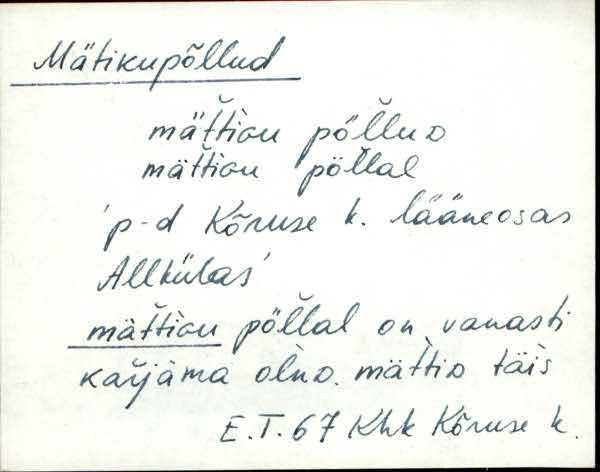 Mätikupõllud
mäťťiᴅu põľľuᴅ
mäťťiᴅu põľľal
'p-d Kõruse k. lääneosas
Allkülas'
mäťťiᴅu põľľal on vanasti
kaŕjàma olnᴅ. mäťťiᴅ täis
E.T. 67 Khk Kõruse k.